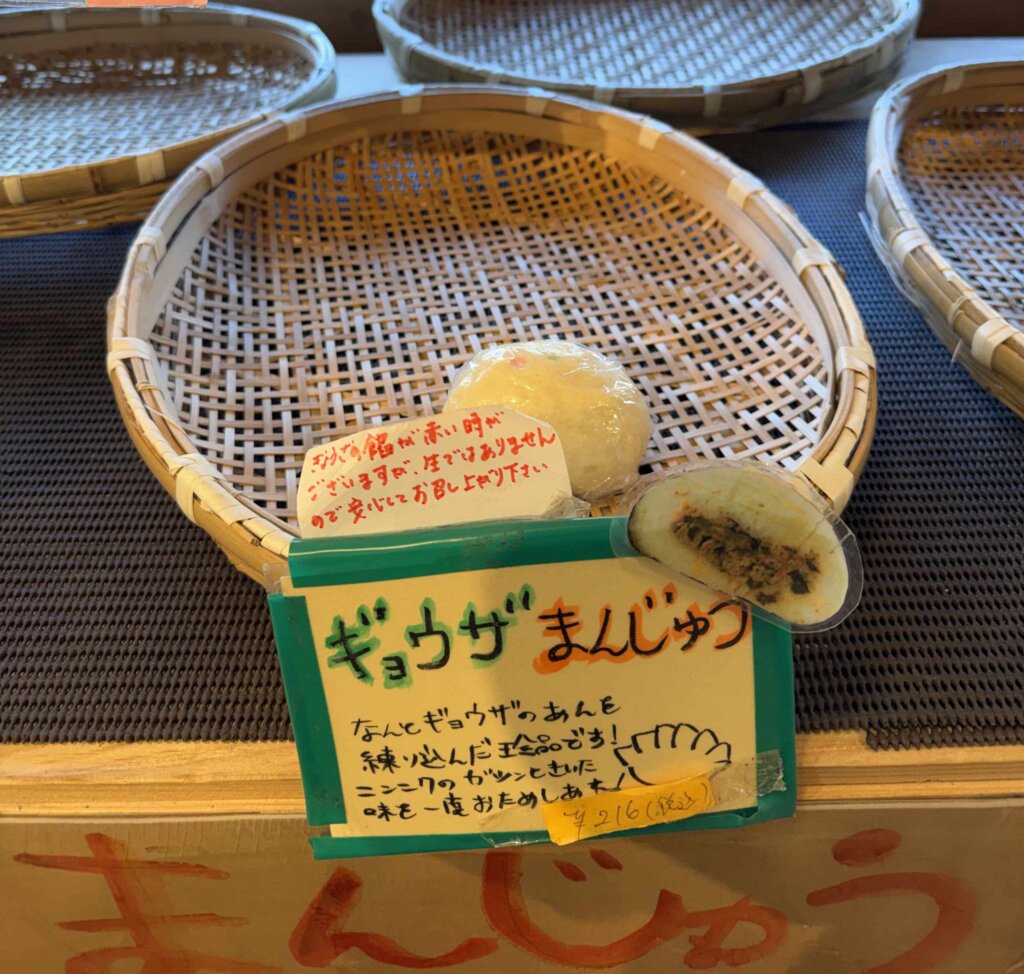 ぎょうざの餡が赤い時が
ございますが、生ではありません
ので安心してお召し上がり下さい
ギョウザまんじゅう
なんとギョウザのあんを
練り込んだ珍品です!
ニンニクのガツンときいた
味を一度おためしあれ
¥216(税込)
まんじゅう